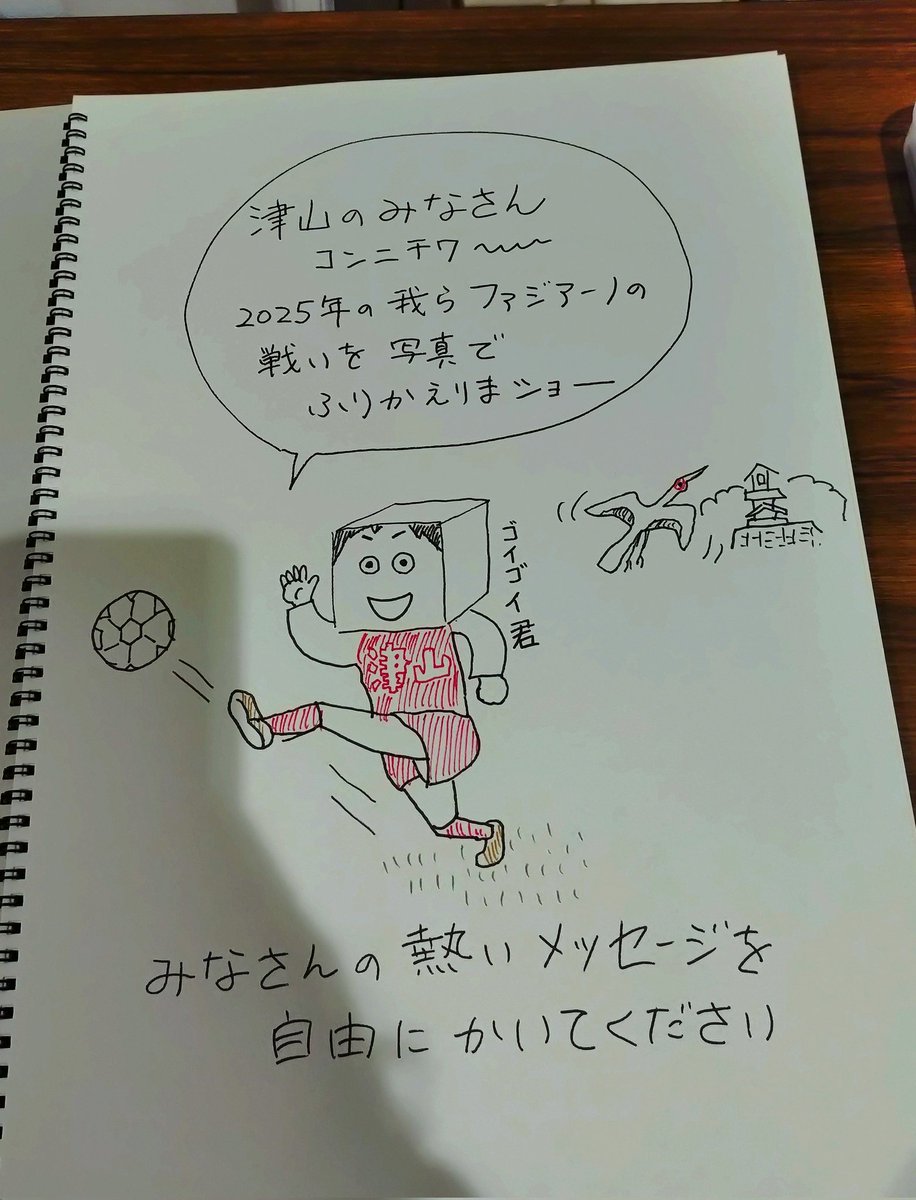 津山のみなさん
コンニチワ〜〜
2025年の我らファジアーノの
戦いを写真で
ふりかえりまショー
ゴイゴイ君
津山
みなさんの熱いメッセージを
自由にかいてください